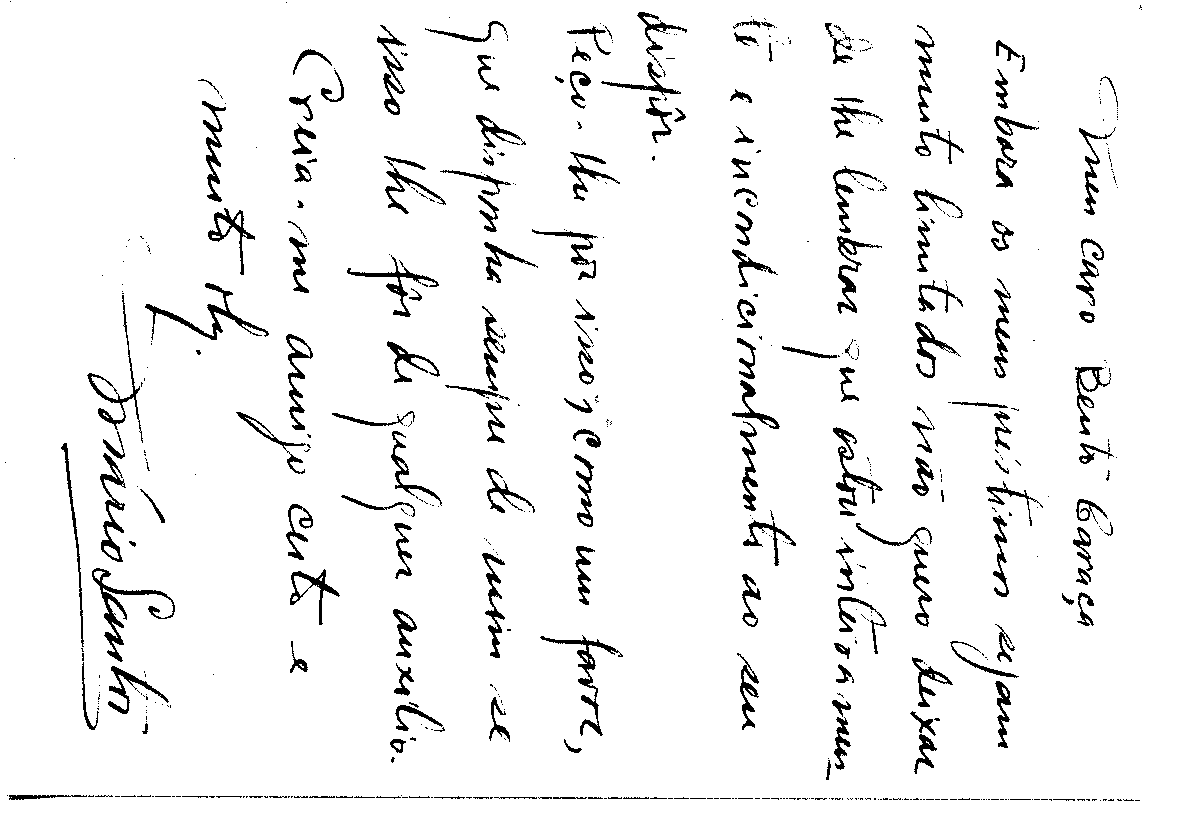 Meu caro Bento Caraça
Embora os meus préstimos sejam
muito limitados não quero deixar
de lhe lembrar que estou inteiramen-
te e incondicionalmente ao seu
dispôr.
Peço-lhe por isso, como um favor,
que disponha sempre de mim se
isso lhe fôr de qualquer auxílio.
Creia-me amigo certo e
muito
Domário Santos